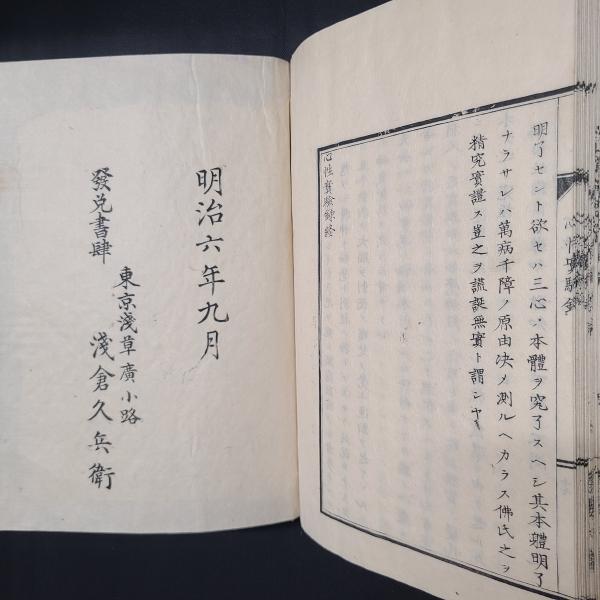 明了セント欲セハ三心ノ本體ヲ究了スヘシ其本軆明了
ナラサレハ萬病千障ノ原由決メ測ルヘカラス佛氏之ヲ
精究實證ス豈之ヲ謊誕無實ト謂シヤ
心性實驗錄終
心性實驗錄
明治六年九月
發兌書肆
東京淺草廣小路
淺倉久兵衛